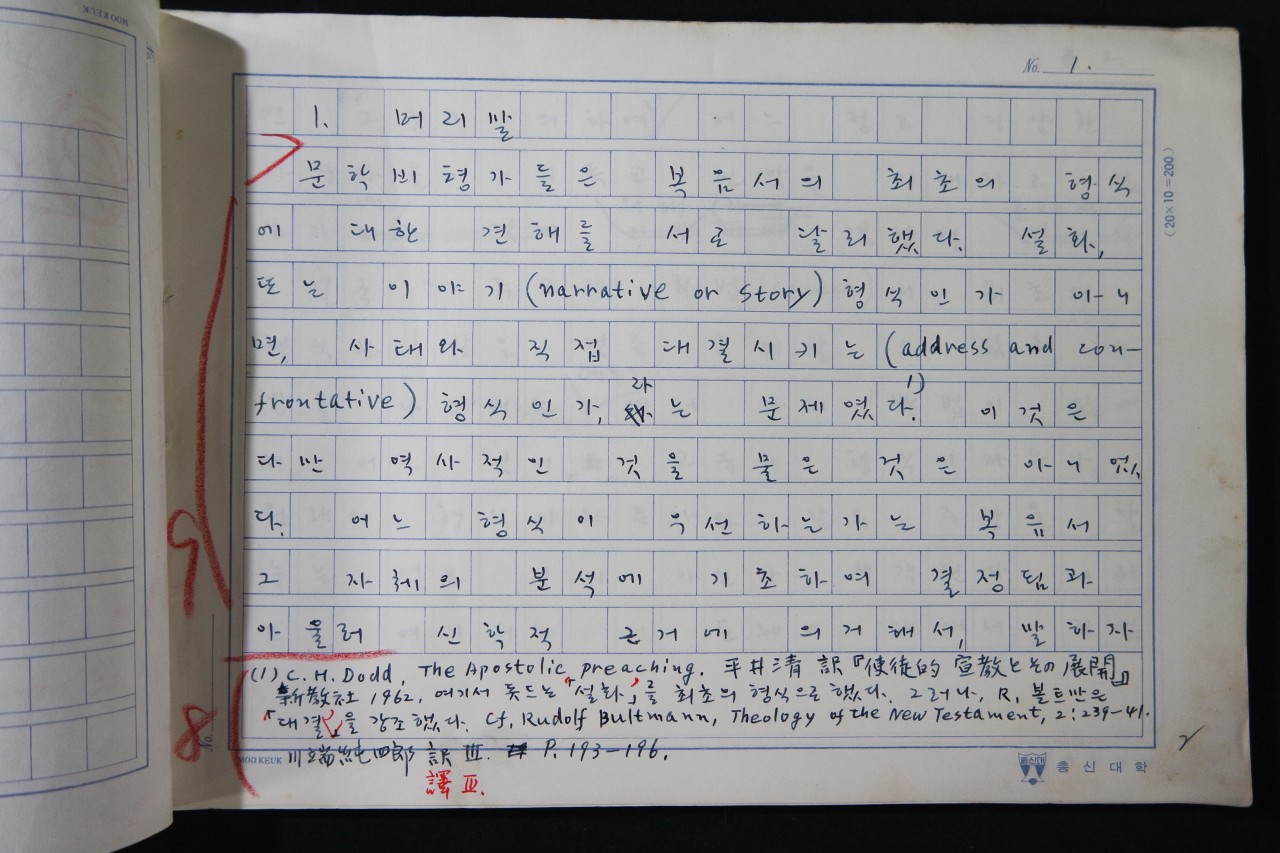 MOO KEUK
No. 1.
1. 머리말
문학비평가들은 복음서의 최초의 형식
에 대한 견해를 서로 달리했다. 설화,
또는 이야기(narrative or story)형식인가 아니
면, 사태와 직접 대결시키는(address and con-
frontative)형식인가, 라는 문제였다.1) 이것은
다만 역사적인 것을 물은 것은 아니었
다. 어느 형식이 우선하는가는 복음서
그 자체의 분석에 기초하여 결정됨과
아울러 신학적 근거에 의거해서, 말하자
(1) C.H. Dodd, The Apostolic preaching. 平井清 訳『使徒的 宣教とその展開』
新教社 1962, 여기서 돗드는 「설화」를 최초의 형식으로 했다. 그러나, R. 볼트만은
「대결」을 강조했다. Cf, Rudolf Bultmann, Theology of the New Testament, 2:239-41.
川端純四郎 訳 Ⅲ. P. 193-196.
譯 Ⅲ.
(20×10=200)
9
8
No.
MOO KEUK
총신대
총신대학
2